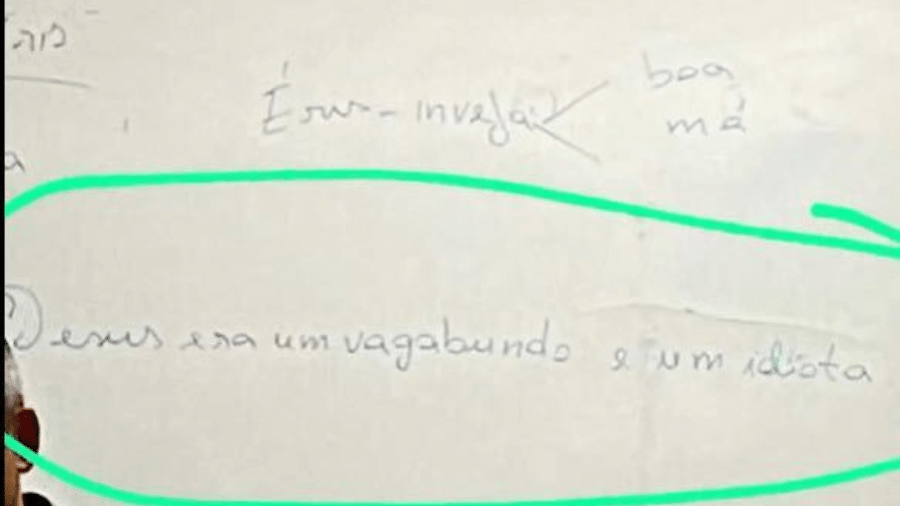 boa
Érus - inveja
má
Jesus era um vagabundo e um idiota